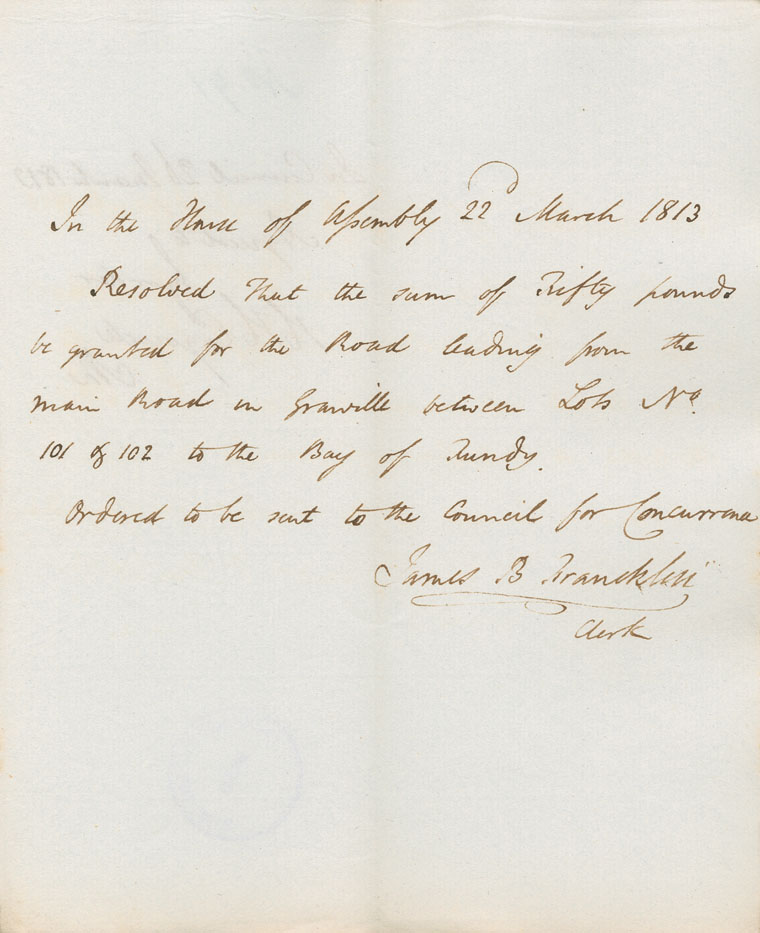 In the House of Assembly 22d March 1813
Resolved That the sum of Fifty pounds
be granted for the Road leading from the
main Road in Granville between Lots No.
101 & 102 to the Bay of Fundy.
Ordered to be sent to the Council for Concurrence
James B Francklin
Clerk